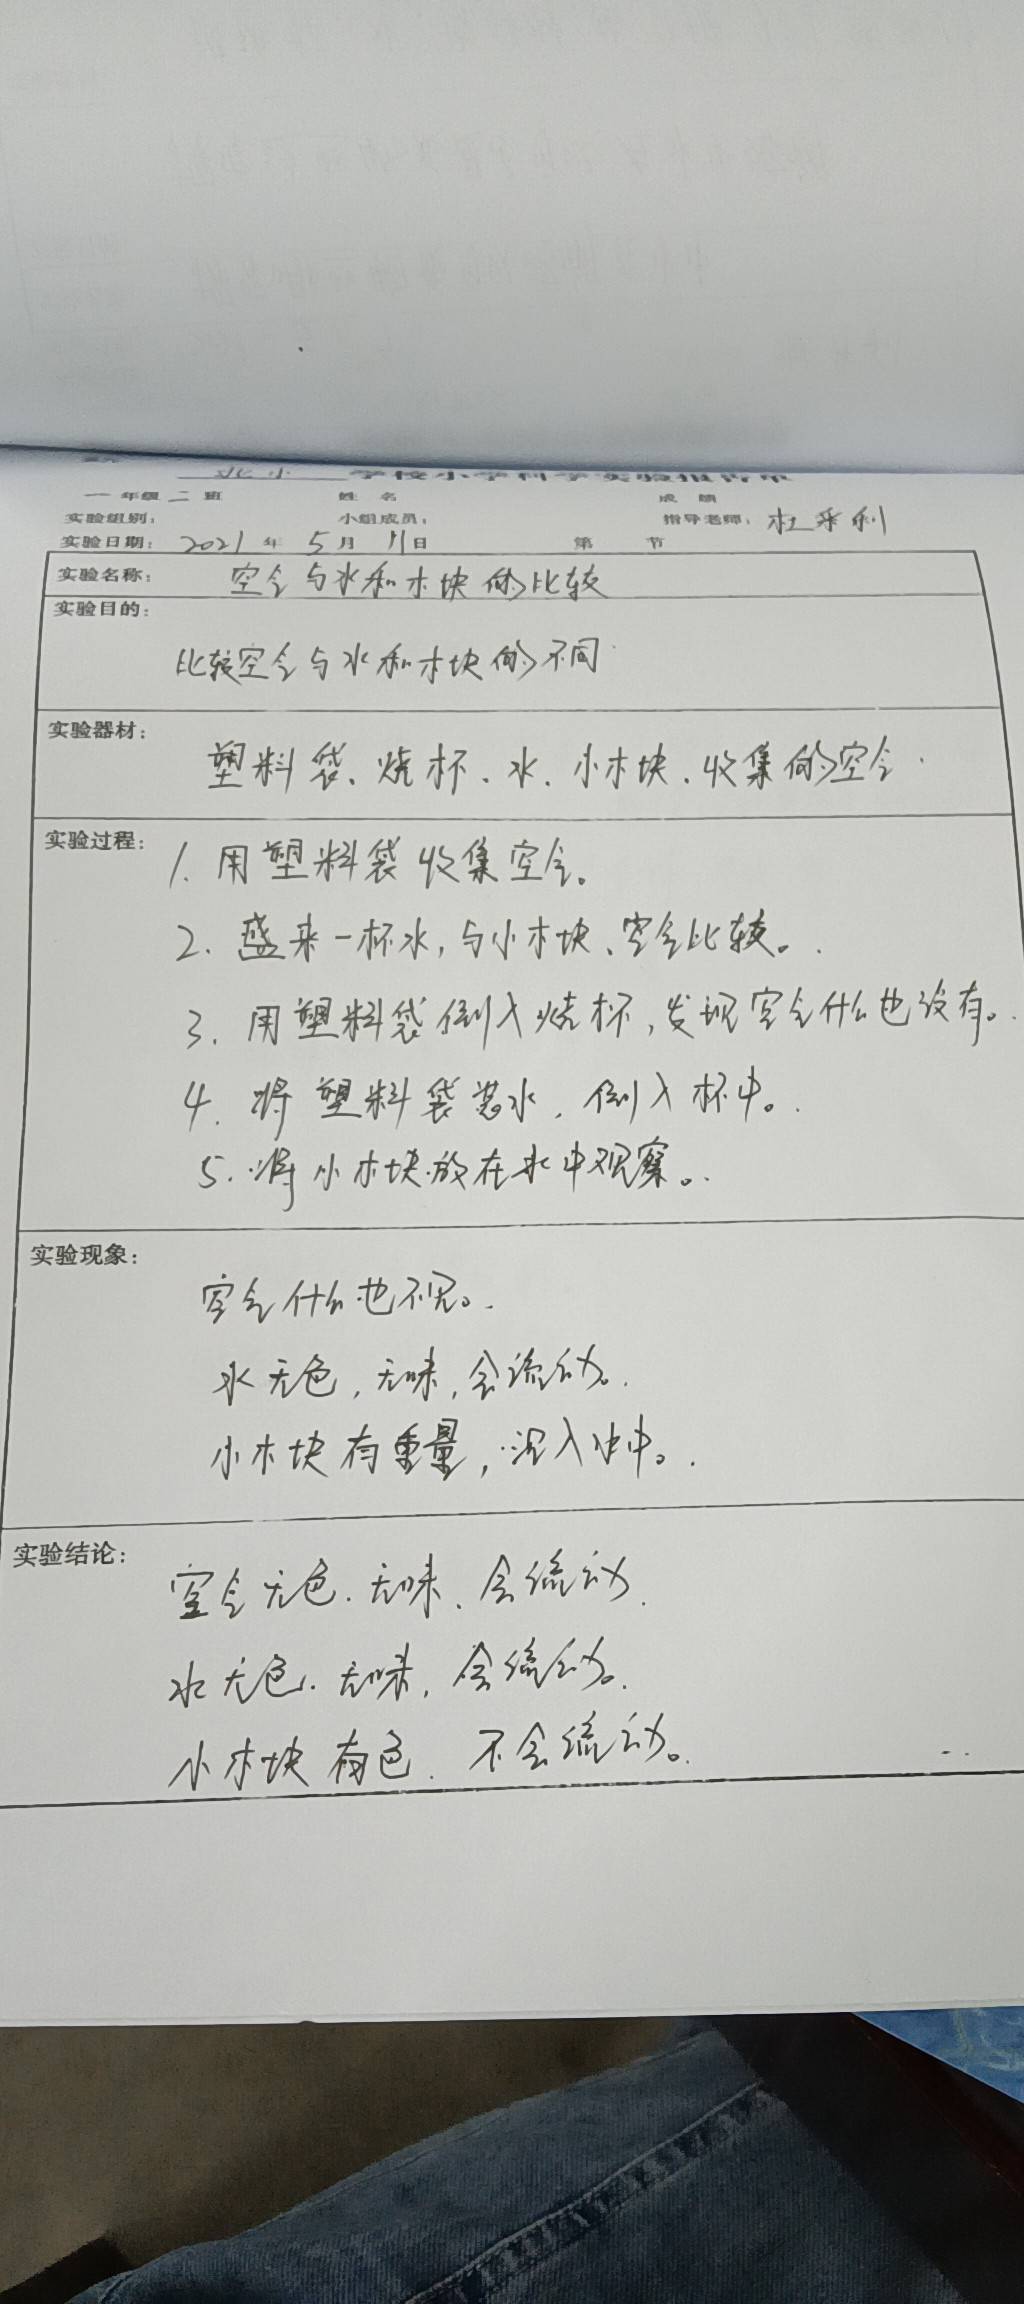 北小 学校小学科学实验报告单
一 年级 二 班 姓 名 成 绩
实验组别： 小组成员： 指导老师：杜采利
实验日期： 2021 年 5 月 11 日 第 节
实验名称： 空气与水和木块的比较
实验目的：
比较空气与水和木块的不同
实验器材：
塑料袋、烧杯、水、小木块、收集的空气
实验过程：
1. 用塑料袋收集空气。
2. 盛来一杯水，与小木块、空气比较。
3. 用塑料袋倒入烧杯，发现空气什么也没有。
4. 将塑料袋装水，倒入杯中。
5. 将小木块放在水中观察。
实验现象：
空气什么也不见。
水无色，无味，会流动。
小木块有重量，沉入水中。
实验结论：
空气无色、无味、会流动.
水无色、无味，会流动。
小木块有色. 不会流动。